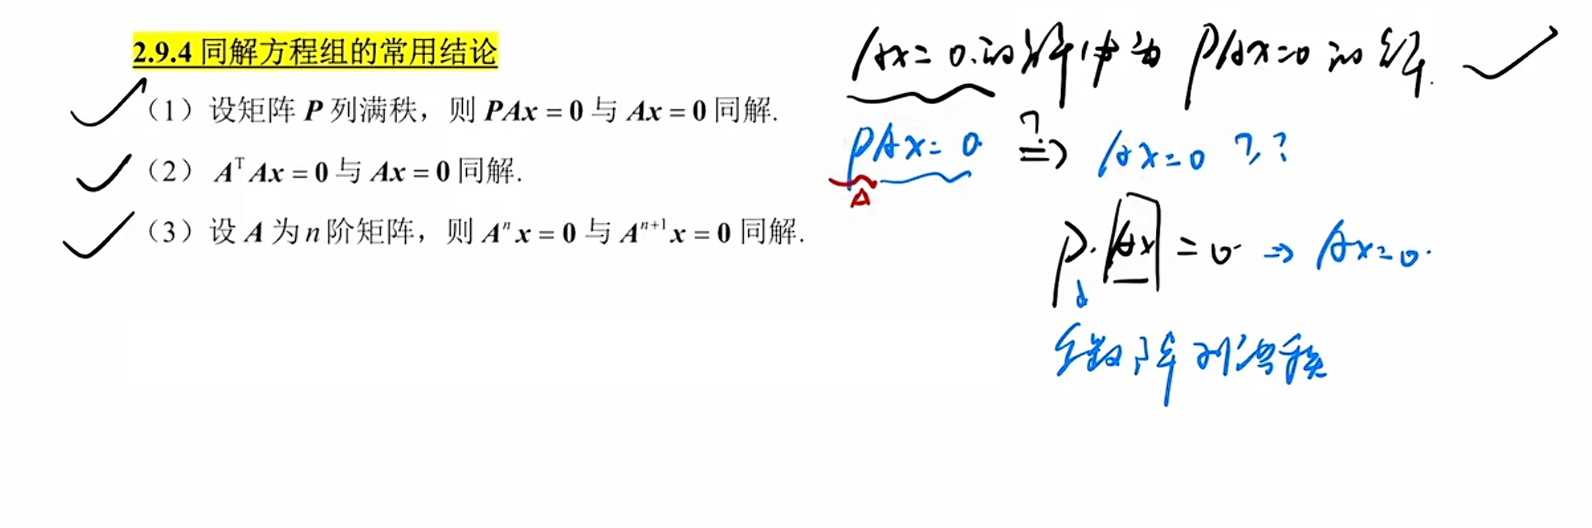 2.9.4 同解方程组的常用结论
（1）设矩阵 P 列满秩，则 PAx = 0 与 Ax = 0 同解.
（2）AᵀAx = 0 与 Ax = 0 同解.
（3）设 A 为 n 阶矩阵，则 Aⁿx = 0 与 Aⁿ⁺¹x = 0 同解.
Ax=0.的解也为 PAx=0 的解.
PAx=0 ?⇒ Ax=0 ??
A
P·Ax=0 ⇒ Ax=0.
系数阵列满秩